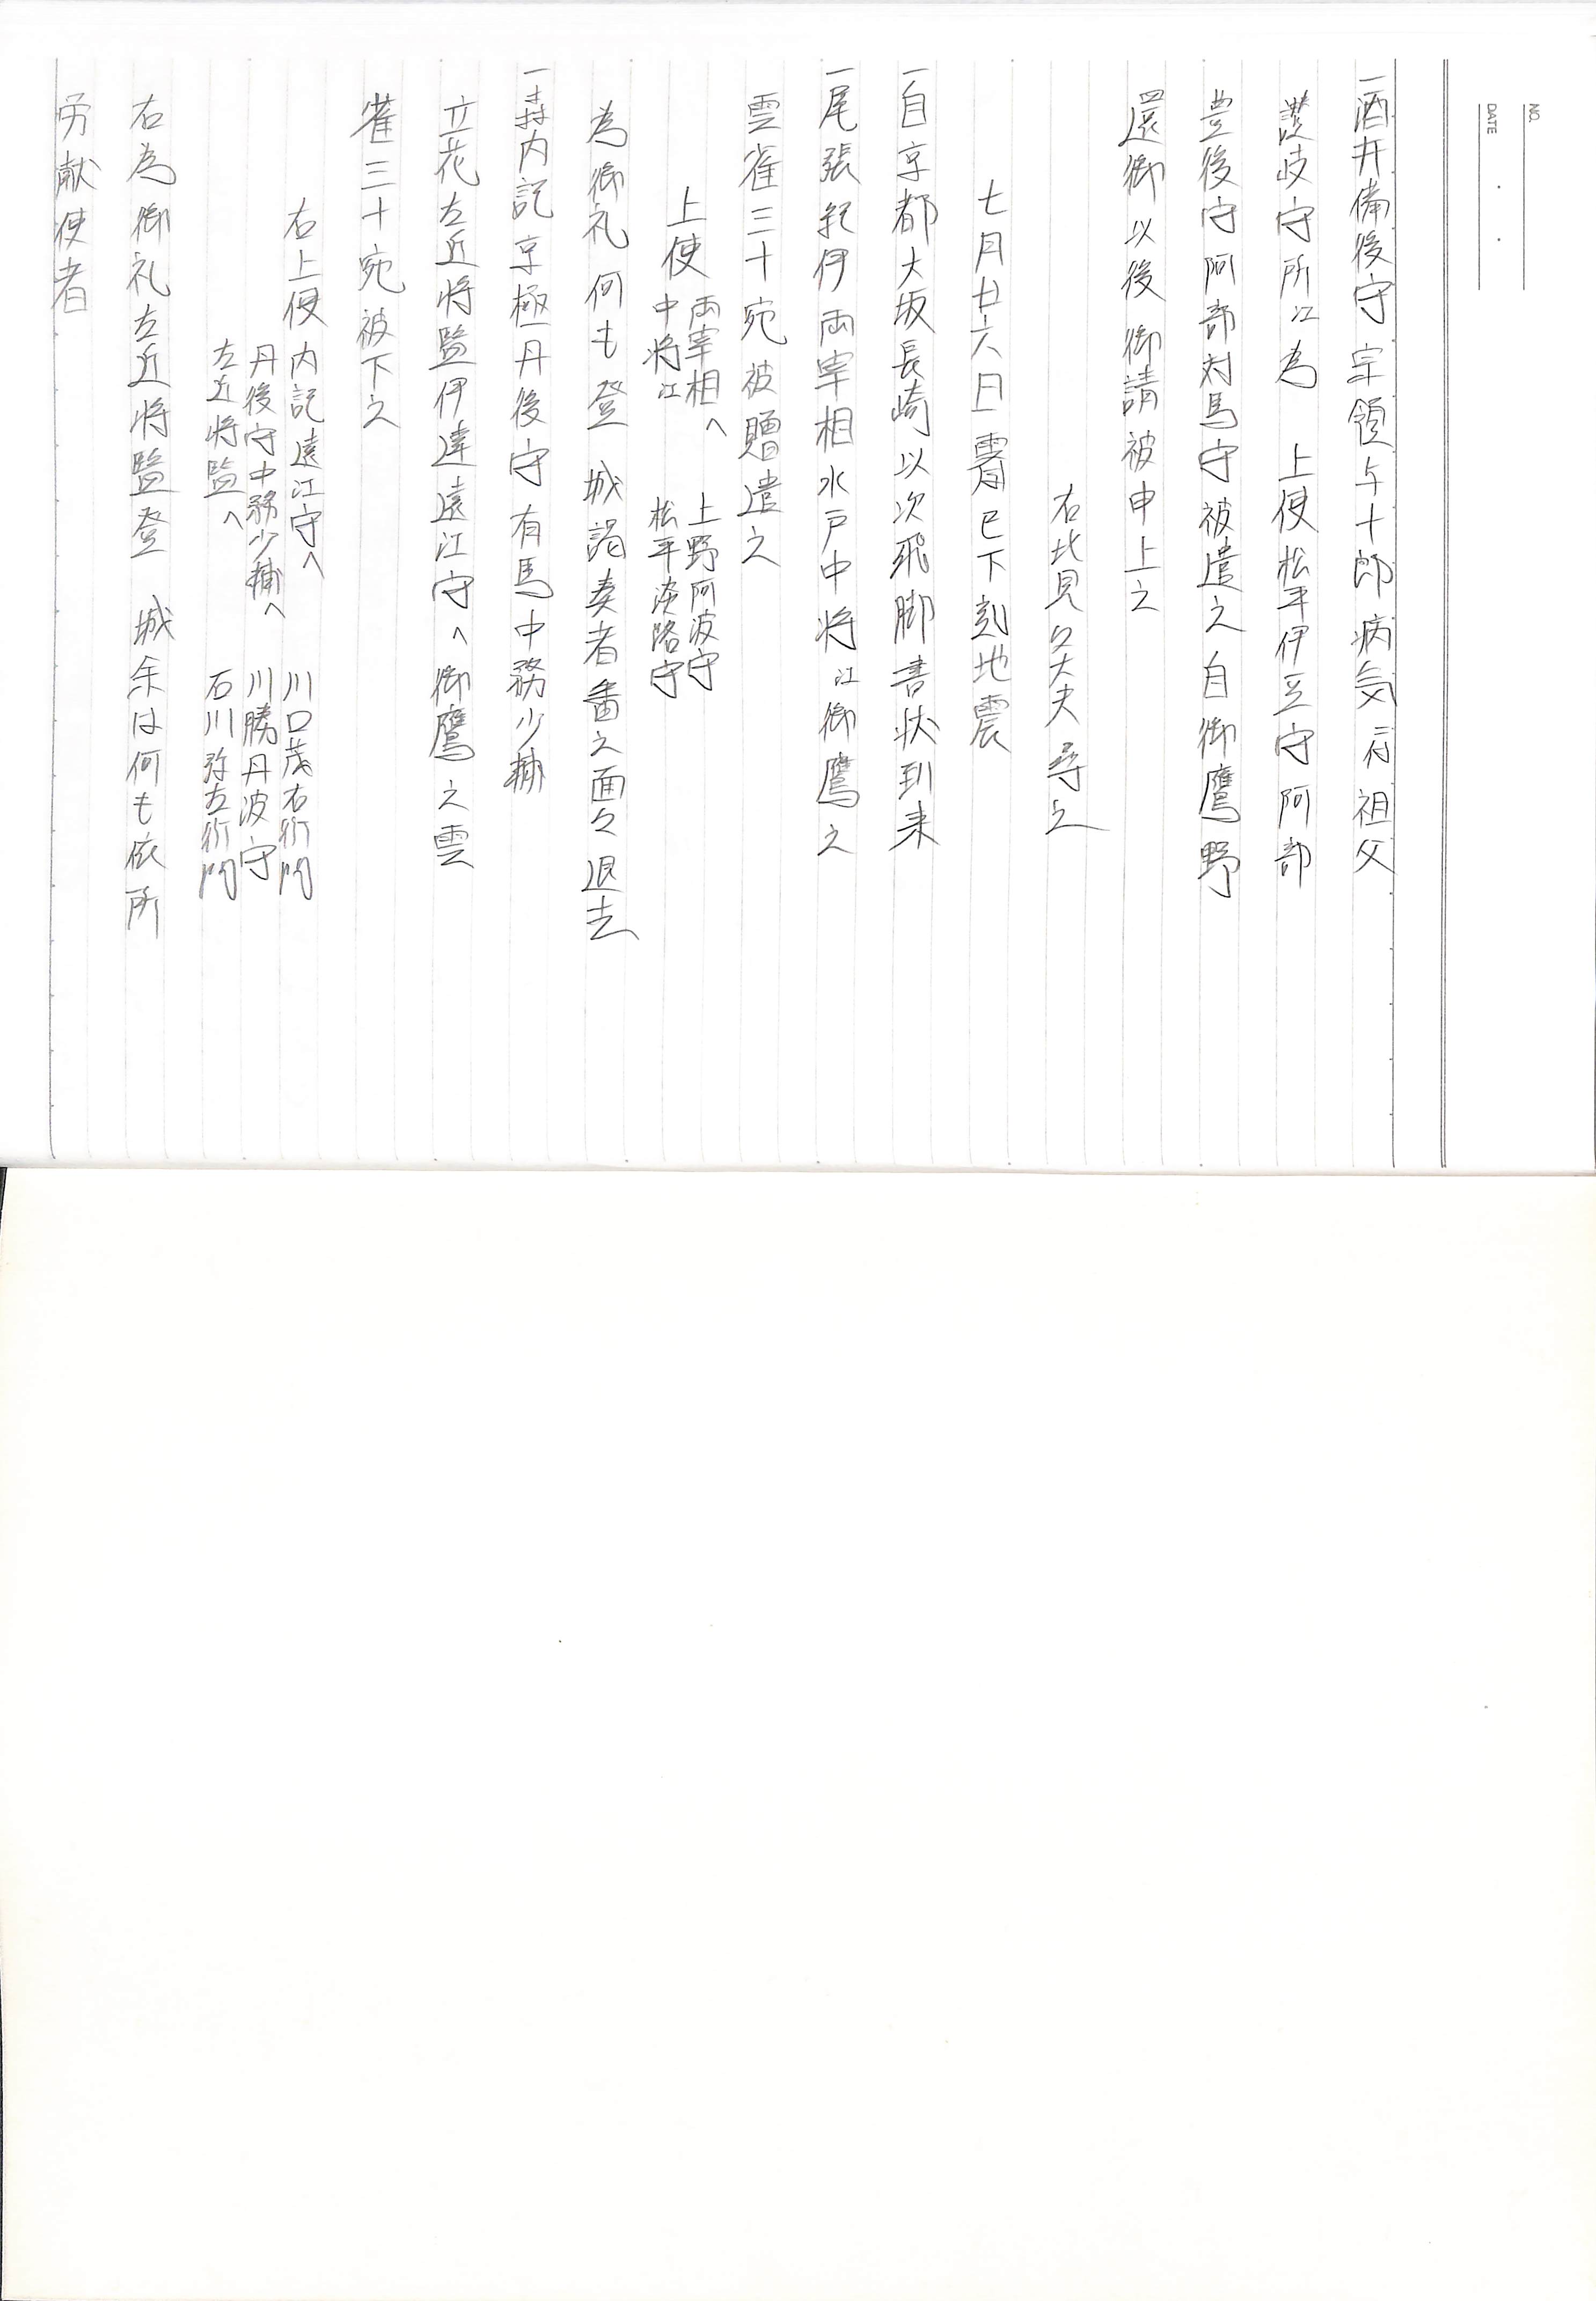 NO.
DATE
一酒井備後守 宗領与十郎 病気ニ付 祖父
讃岐守所江為 上使松平伊豆守 阿部
豊後守 阿部対馬守被遣之 自御鷹野
還御以後 御請被申上之
右北見久大夫尋之
七月廿六日 曇 巳下刻地震
一自京都大坂長崎以次飛脚書状到来
一尾張紀伊両宰相水戸中将江御鷹之
雲雀三十宛被贈遣之
上使 両宰相へ 上野阿波守
中将江 松平淡路守
為御礼何も登 城謁奏者番之面々退去
一森内記 京極丹後守 有馬中務少輔
立花左近将監伊達遠江守へ御鷹之雲
雀三十宛被下之
右上使 内記遠江守へ 川口茂右衛門
丹後守中務少輔へ 川勝丹波守
左近将監へ 石川弥左衛門
右為御礼左近将監登 城余は何も依所
労献使者